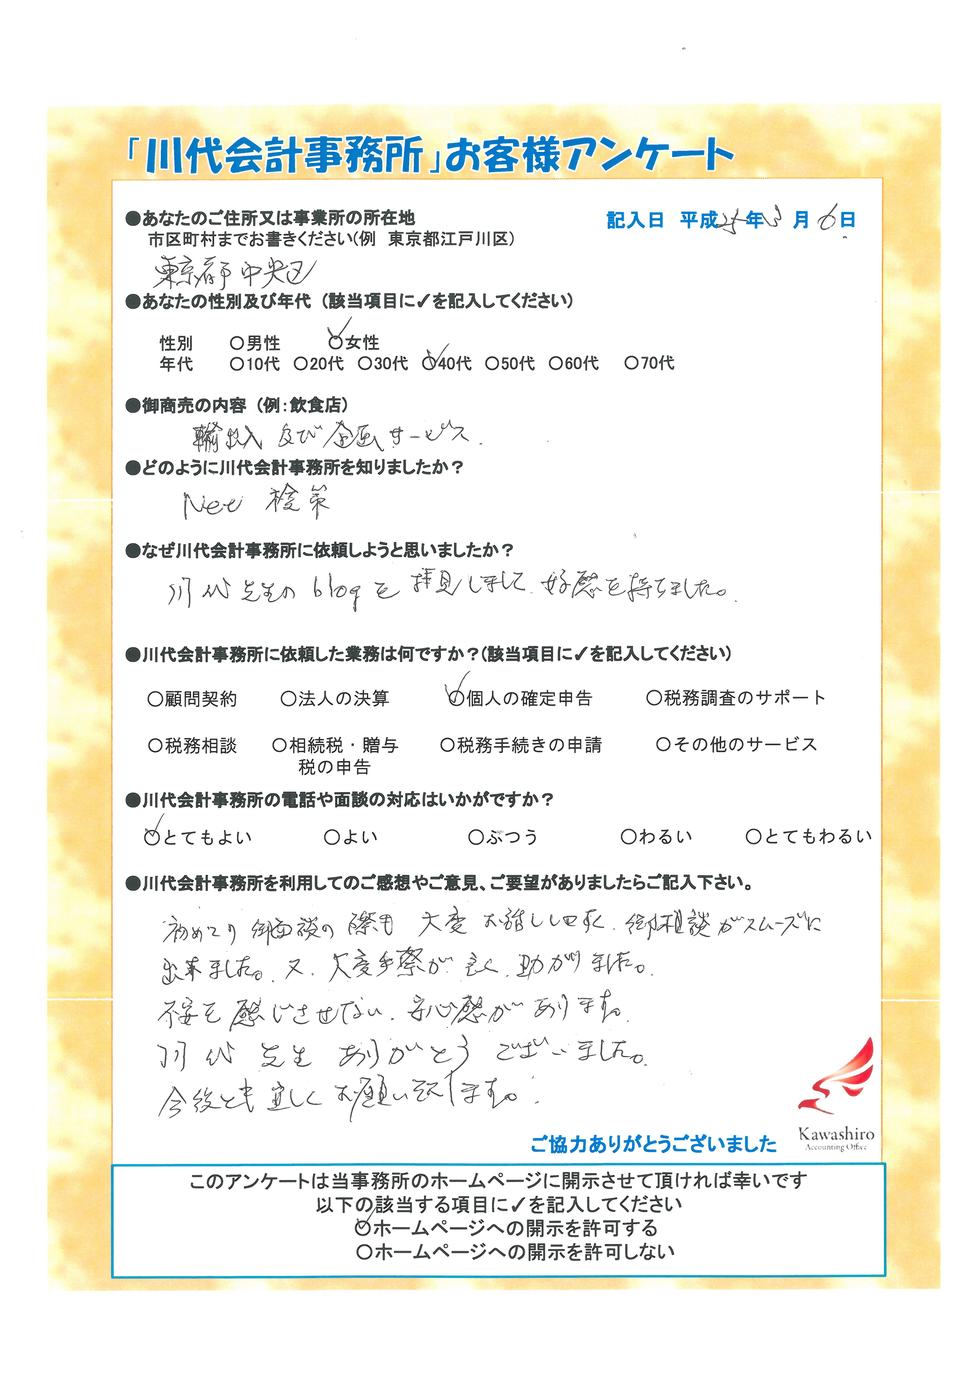 「川代会計事務所」お客様アンケート
●あなたのご住所又は事業所の所在地
記入日 平成25年3月6日
市区町村までお書きください(例 東京都江戸川区)
東京都中央区
●あなたの性別及び年代 (該当項目に✓を記入してください)
性別 ○男性 ○女性
年代 ○10代 ○20代 ○30代 ○40代 ○50代 ○60代 ○70代
●御商売の内容 (例:飲食店)
輸出入及び企画サービス.
●どのように川代会計事務所を知りましたか?
Net 検策
●なぜ川代会計事務所に依頼しようと思いましたか?
川代先生のblogを拝見しまして、好感を持ちました。
●川代会計事務所に依頼した業務は何ですか?(該当項目に✓を記入してください)
○顧問契約 ○法人の決算 ○個人の確定申告 ○税務調査のサポート
○税務相談 ○相続税・贈与 ○税務手続きの申請 ○その他のサービス
税の申告
●川代会計事務所の電話や面談の対応はいかがですか?
○とてもよい ○よい ○ぶつう ○わるい ○とてもわるい
●川代会計事務所を利用してのご感想やご意見、ご要望がありましたらご記入下さい。
初めての御面談の際も 大変お話ししやすく、御相談がスムーズに
出来ました。又、大変手際が良く、助かりました。
不安を感じさせない、安心感があります。
川代先生ありがとうございました。
今後とも宜しくお願い致します。
Kawashiro
Accounting Office
ご協力ありがとうございました
このアンケートは当事務所のホームページに開示させて頂ければ幸いです
以下の該当する項目に✓を記入してください
○ホームページへの開示を許可する
○ホームページへの開示を許可しない